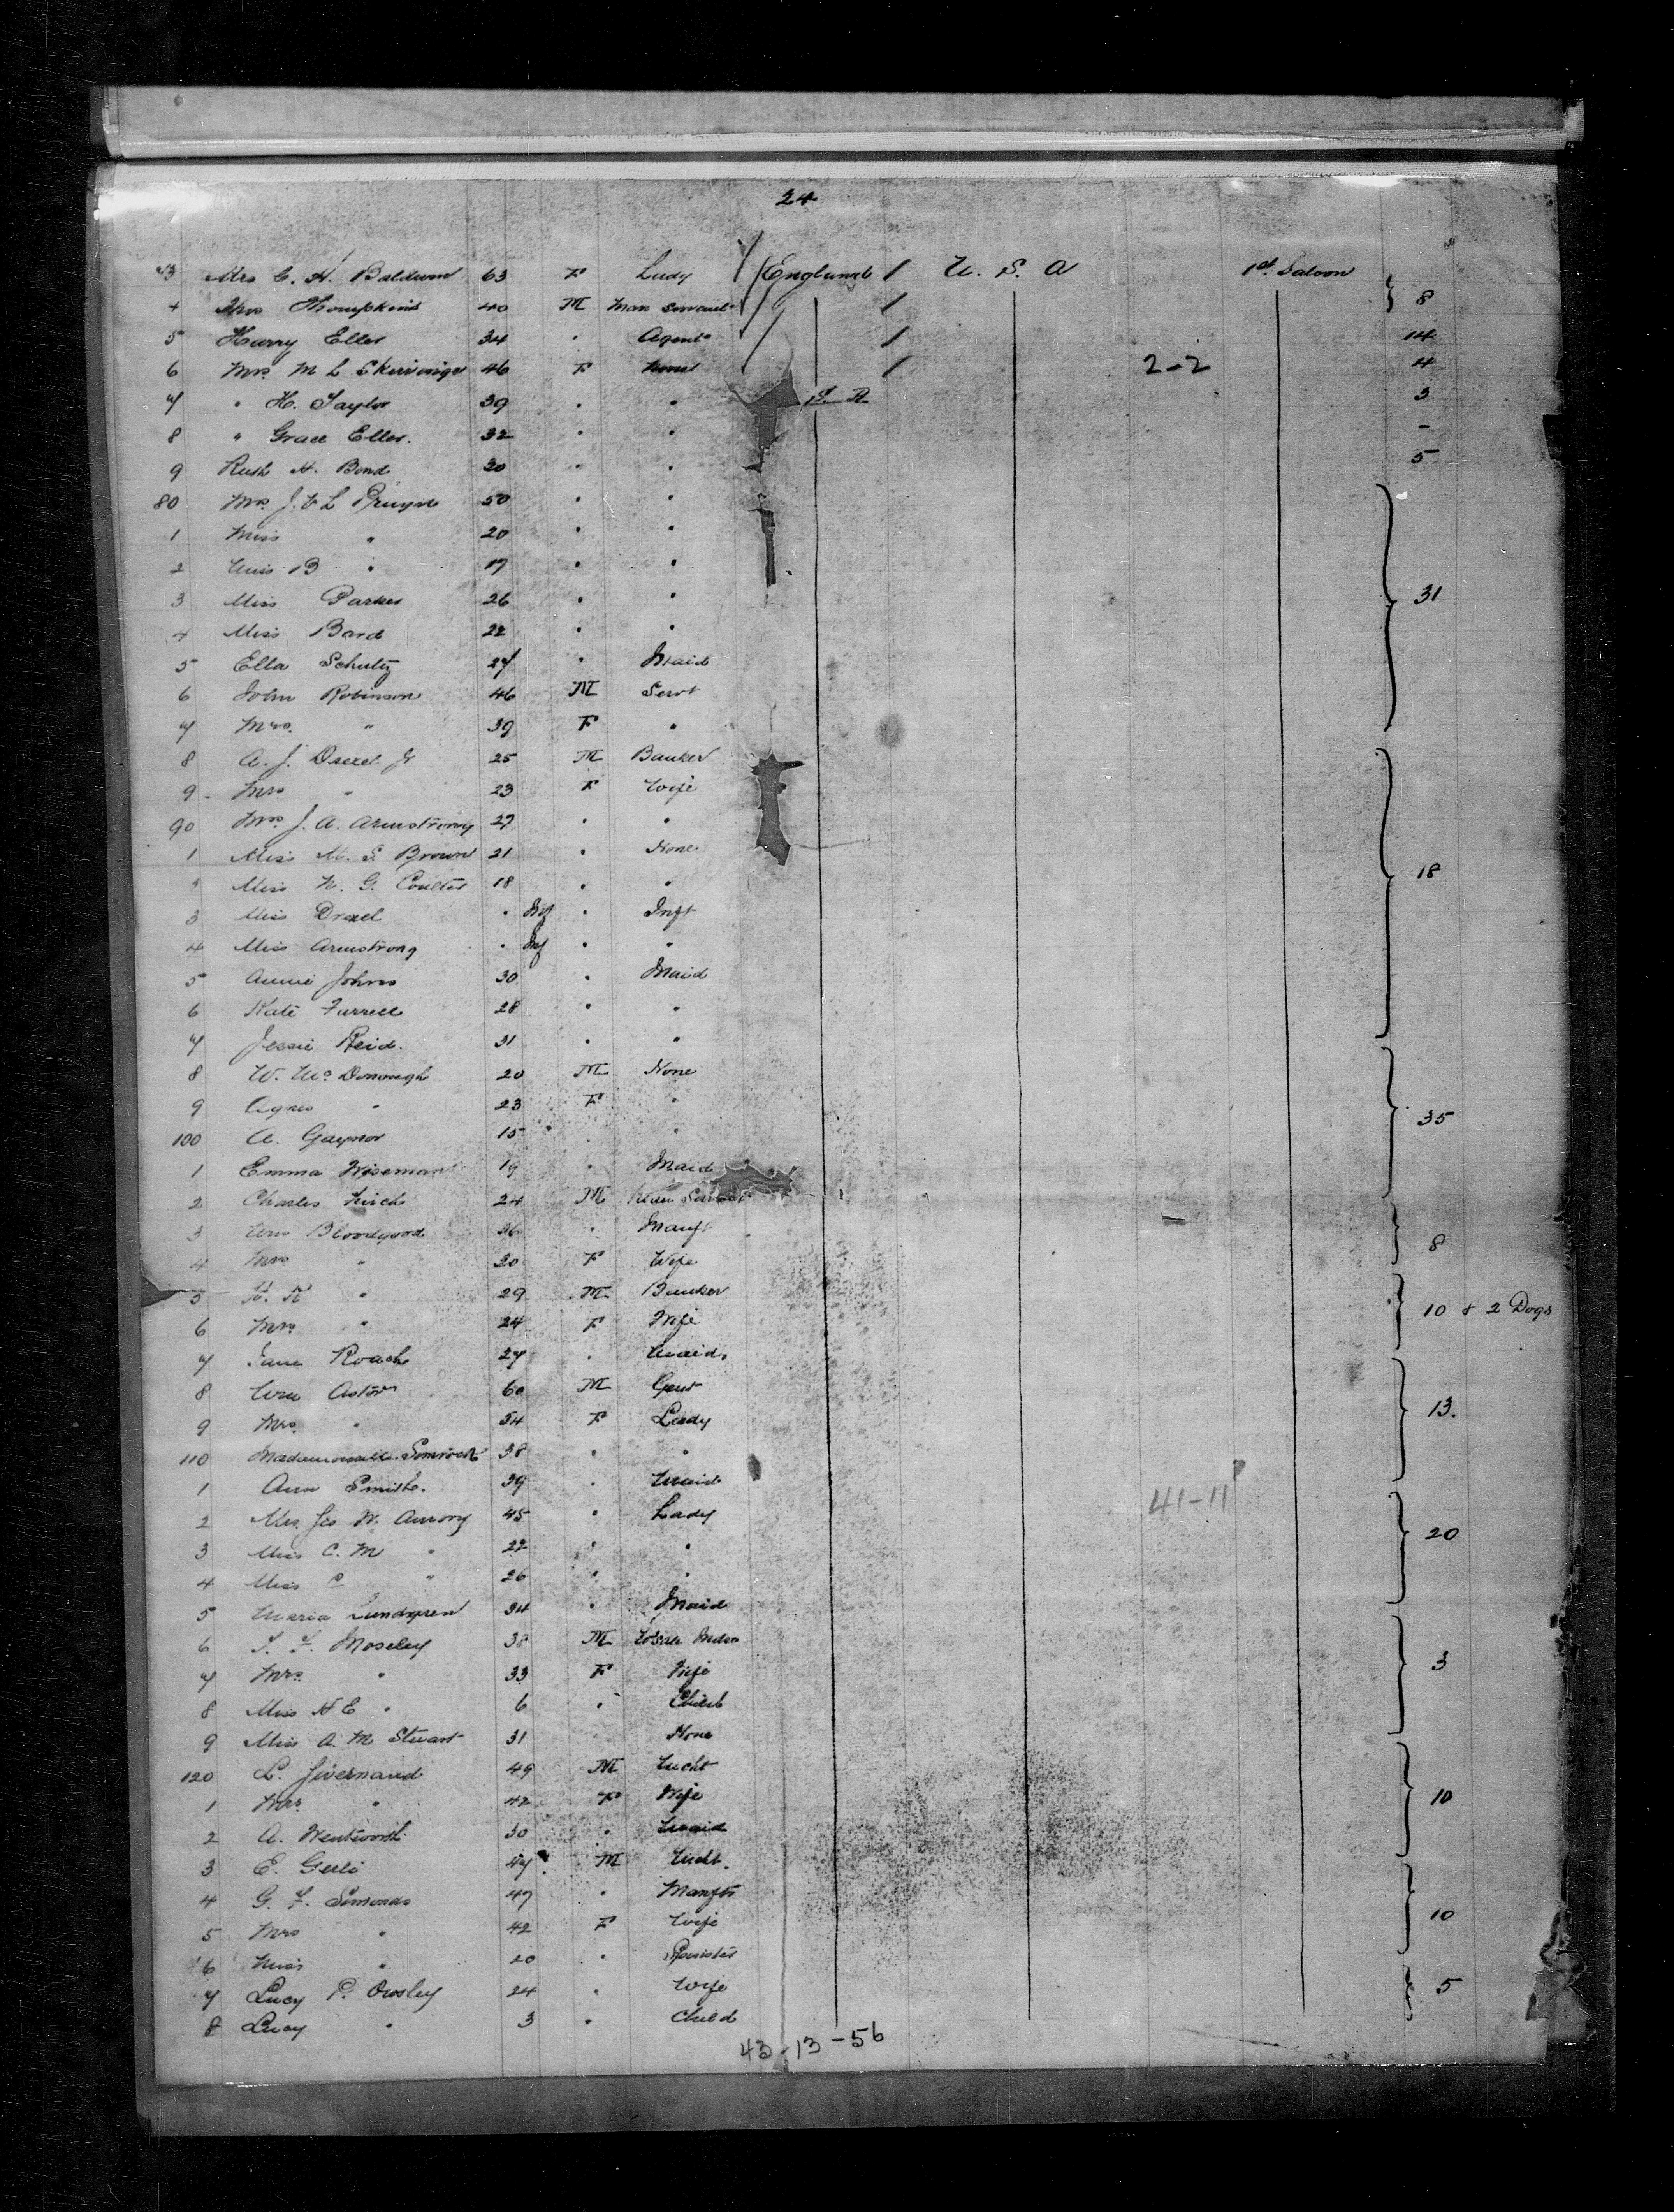 24
73 Mrs C. H. Baldwin 63 F Lady England / U. S. A 1st Saloon
4 Thos Thompkins 40 M Man Servant / 8
5 Harry Eller 34 " Agent / 14
6 Mrs M L 46 F None / 2-2 4
7 " H. Taylor 39 " " U.S.A. 3
8 " Grace Eller. 32 " " -
9 Ruth H. Bond 30 " " 5
80 Mrs J. V L Pruyn 50 " "
1 Miss " 20 " "
2 Miss B " 17 " "
3 Miss Parker 26 " " 31
4 Miss Bard 22 " "
5 Ella Schultz 27 " Maid
6 John Robinson 46 M Servt
7 Mrs. " 39 F "
8 A. J. Drexel Jr 25 M Banker
9 Mrs " 23 F Wife
90 Mrs J. A. Armstrong 27 " "
1 Miss M. S. Brown 21 " None
" Miss N. G. Coulter 18 " " 18
3 Miss Drexel " Inf " Inft
4 Miss Armstrong " Inf " "
5 Annie Johns 30 " Maid
6 Kate 28 " "
7 Jessie Reid. 31 " "
8 W. McDonough 20 M None
9 Agnes " 23 F "
100 A. Gaynor 15 " " 35
1 Emma Wiseman 19 " Maid
2 Charles 24 M Man Servant
3 Wm Bloodgood 26 " Manft
4 Mrs " 20 F Wife 8
5 " 29 M Banker
6 Mrs " 24 F Wife 10 & 2 Dogs
7 Jane Roach 27 " Maid
8 Wm Astor 60 M Gent
9 Mrs. " 54 F Lady 13.
110 Mademoiselle 38 " "
1 Ann Smith. 39 " Maid 41-11
2 Mrs Jas W. Amory 45 " Lady
3 Miss C. M " 22 " " 20
4 Miss " 26 " "
5 Maria Lundgren 34 " Maid
6 T. F. Moseley 38 M
7 Mrs. " 33 F Wife 3
8 Miss H E " 6 " Child
9 Miss A. M Stuart 31 None
120 L. 49 M Mcht
1 Mrs " 42 F Wife 10
2 A. Wentworth 30 " Maid
3 E. Gerli 47 M Mcht.
4 G. F. Simonds 47 " Manftr
5 Mrs " 42 F Wife 10
6 Miss " 20 " Spinster
7 Lucy P. Owsley 24 " Wife 5
8 Lucy " 3 " Child
43-13-56